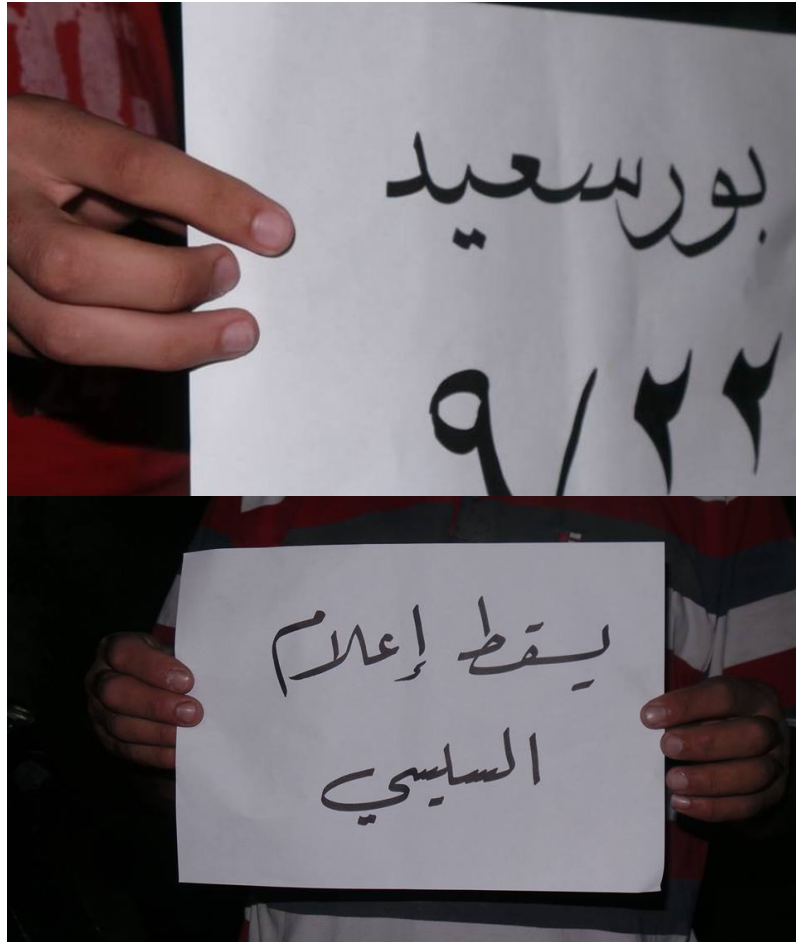 بورسعيد
٩/٢٢
يسقط إعلام
السيسي